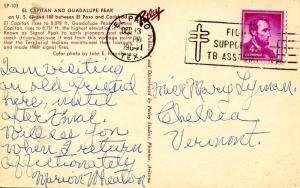 EP-103
EL CAPITAN AND GUADALUPE PEAK
on U. S. Highway 180 between El Paso and Carlsbad
El Capitan rises to 8,078 ft. Guadalupe Peak
Capitan, rises to 8,751 ft. the highest
Known as Signal Peak by early pioneers and
coach drivers because it was from this vantage point
that the Territorial Indians maintained their lookout
and made their signal fires.
Color photo by John E.
Petley
EL PASO
13
PM
TEX.
FIG
SUPPO
TB ASS
Published and Distributed by Petley Studies, Phoenix, Arizona
I am visiting
an old friend
here, until
after Xmas.
Will see you
when I return
affectionately
Marion Wheaton
Miss Mary Lyman.
Chelsea
Vermont.